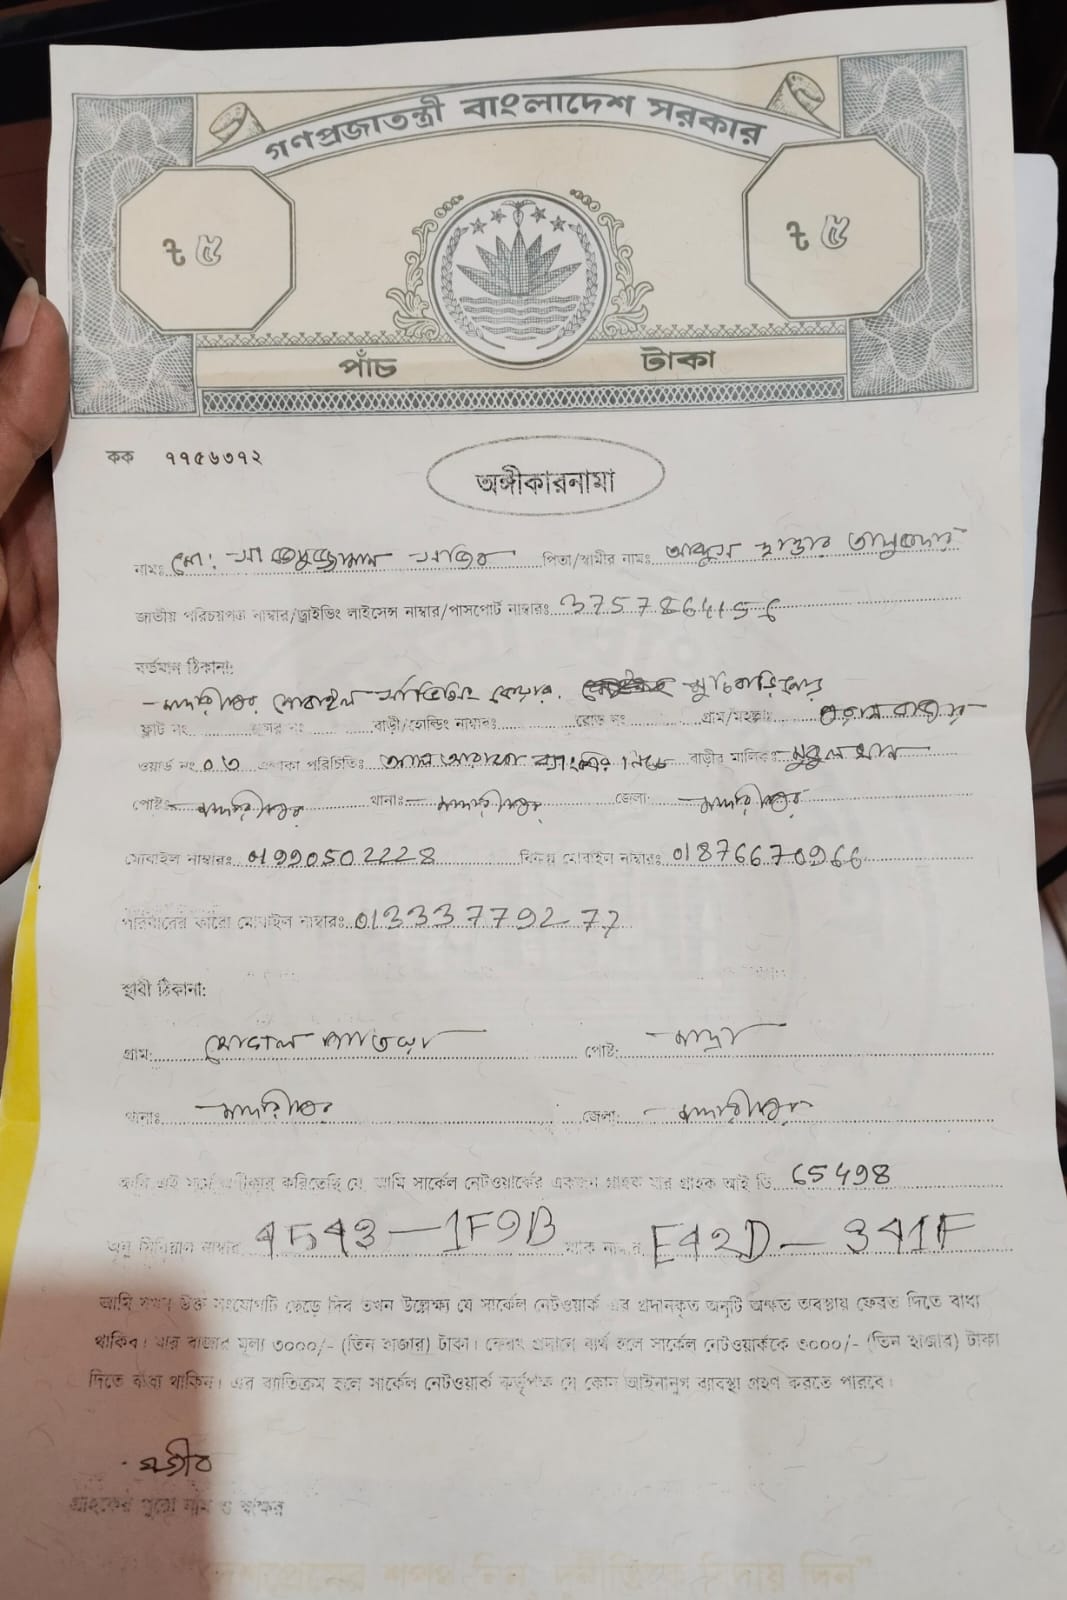 গণপ্রজাতন্ত্রী বাংলাদেশ সরকার
ট ৫ ট ৫
পাঁচ টাকা
কক ৭৭৫৬৩৭২
অঙ্গীকারনামা
নামঃ মো: সাজিব পিতা/স্বামীর নামঃ আব্দুস ছাত্তার তালুকদার
জাতীয় পরিচয়পত্র নাম্বার/ড্রাইভিং লাইসেন্স নাম্বার/পাসপোর্ট নাম্বারঃ 3757864156
বর্তমান ঠিকানা:
মাদারীপুর মোবাইল সার্ভিসিং কেয়ার.
ফ্লাট নং বাড়ী/হোল্ডিং নাম্বারঃ রোড নং গ্রাম/মহল্লাঃ
ওয়ার্ড নং ০৩ এলাকা পরিচিতিঃ আল আরাফা ব্যাংকের নিচে বাড়ীর মালিকঃ
পোষ্টঃ মাদারীপুর থানাঃ মাদারীপুর জেলা: মাদারীপুর
মোবাইল নাম্বারঃ 01990502228 বিকল্প মোবাইল নাম্বারঃ 01876670966
পরিবারের কারো মোবাইল নাম্বারঃ 013337792 77
স্থায়ী ঠিকানা:
গ্রাম: পোষ্ট: মাদ্রা
থানাঃ মাদারীপুর জেলা: মাদারীপুর
আমি এই মর্মে অঙ্গীকার করিতেছি যে, আমি সার্কেল নেটওয়ার্কের একজন গ্রাহক যার গ্রাহক আই ডি 65498
অনু সিরিয়াল নাম্বার 4543-1F9B ম্যাক নাম্বার E42D-341F
আমি যখন উক্ত সংযোগটি ছেড়ে দিব তখন উল্লেক্ষ্য যে সার্কেল নেটওয়ার্ক এর প্রদানকৃত অনুটি অক্ষত অবস্থায় ফেরত দিতে বাধ্য
থাকিব। যার বাজার মূল্য ৩০০০/- (তিন হাজার) টাকা। ফেরৎ প্রদানে ব্যর্থ হলে সার্কেল নেটওয়ার্ককে ৩০০০/- (তিন হাজার) টাকা
দিতে বাধ্য থাকিব। এর ব্যতিক্রম হলে সার্কেল নেটওয়ার্ক কর্তৃপক্ষ যে কোন আইনানুগ ব্যাবস্থা গ্রহণ করতে পারবে।
গ্রাহকের পুরো নাম ও স্বাক্ষর
"দেশপ্রেমের শপথ নিন, দুর্নীতিকে বিদায় দিন"